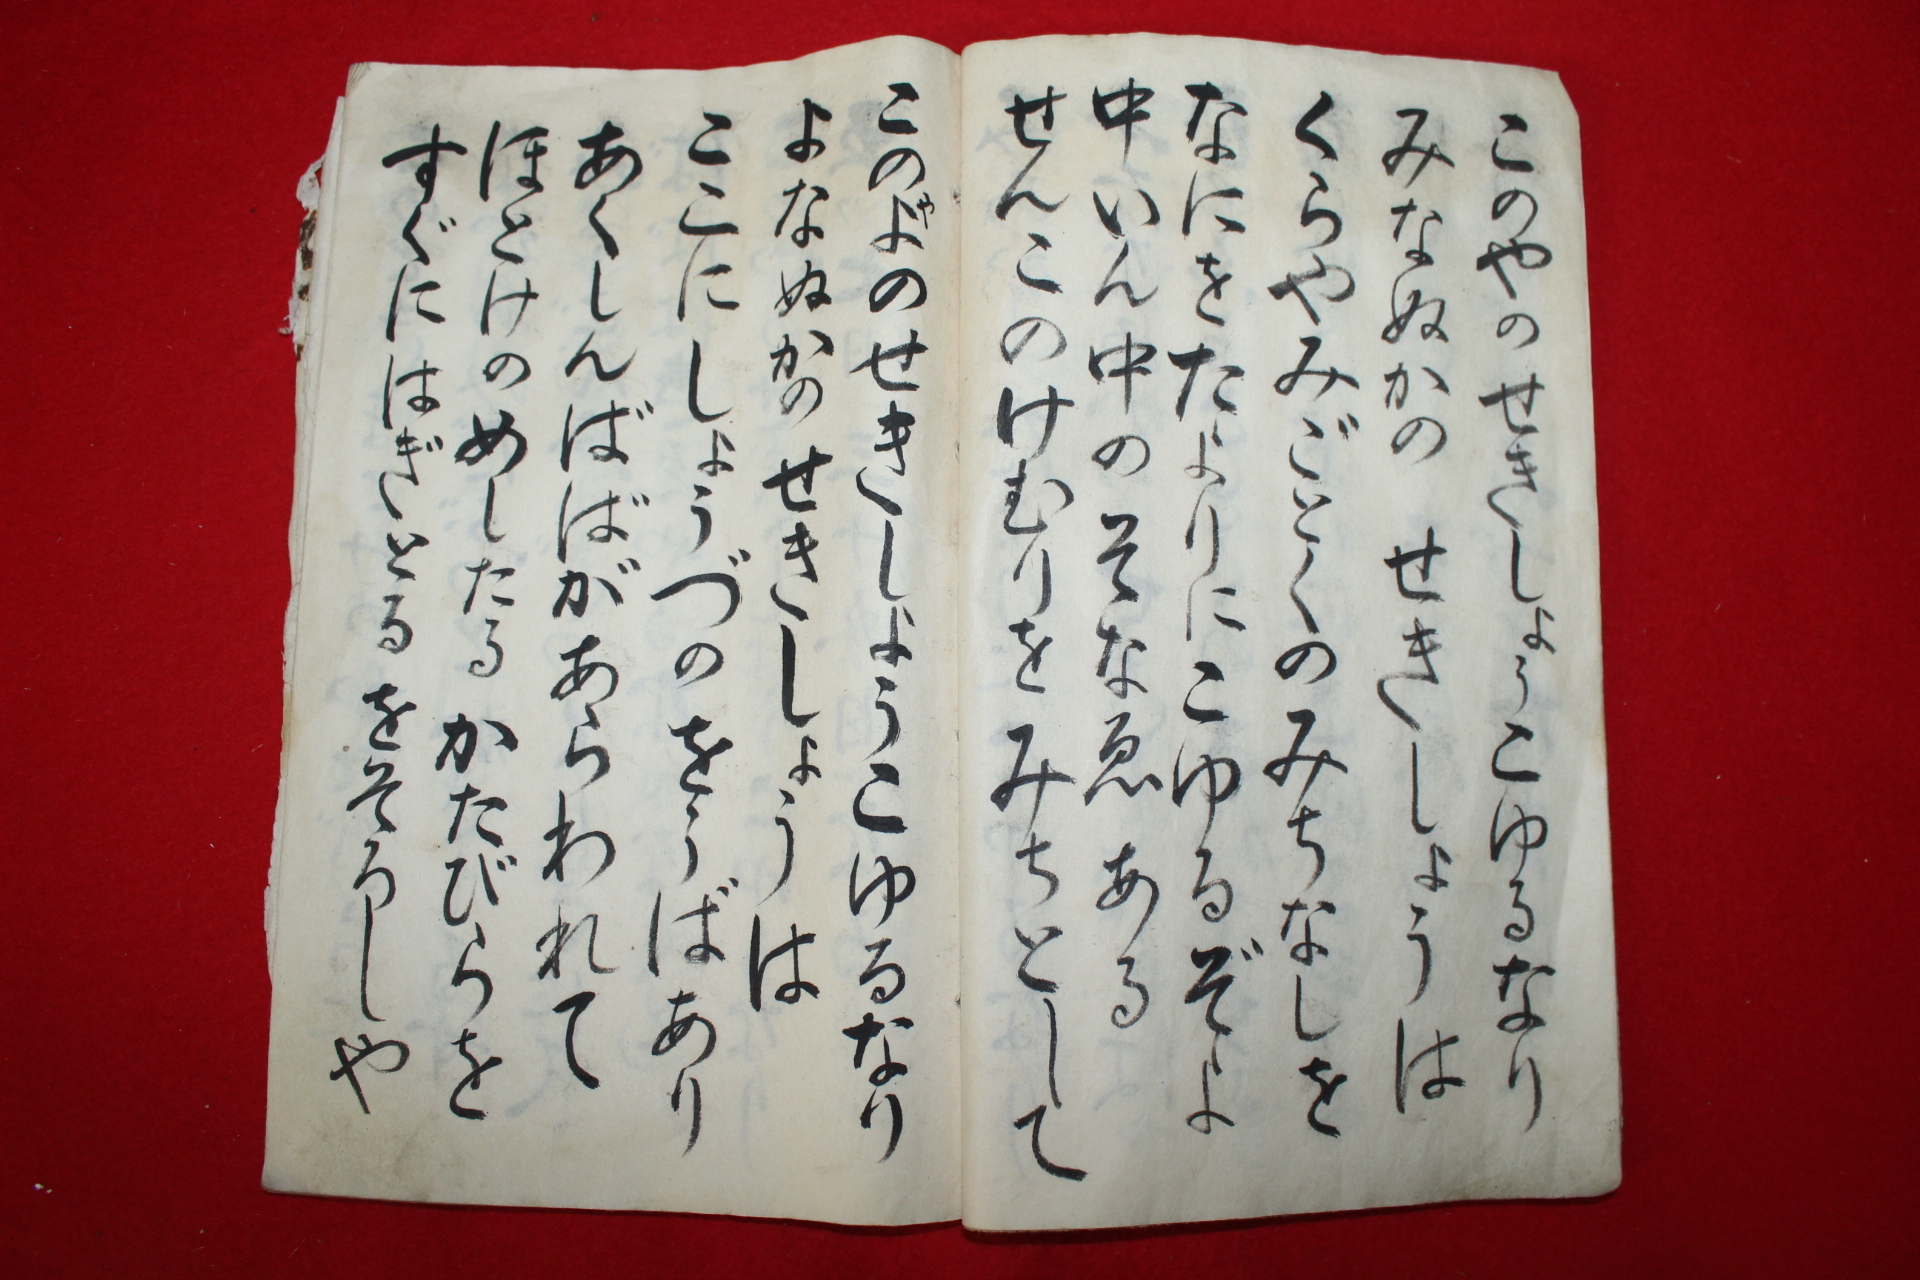 このやのせきしょうこゆるなり
みなぬかの せきしょうは
くらやみごとくのみちなしを
なにをたよりにこゆるぞよ
中いん中のそなゑある
せんこのけむりをみちとして
このよのせきしょうこゆるなり
よなぬかの せきしょうは
ここにしょうづのをうばあり
あくしんばばがあらわれて
ほとけのめしたる かたびらを
すぐにはぎとる をそろしや